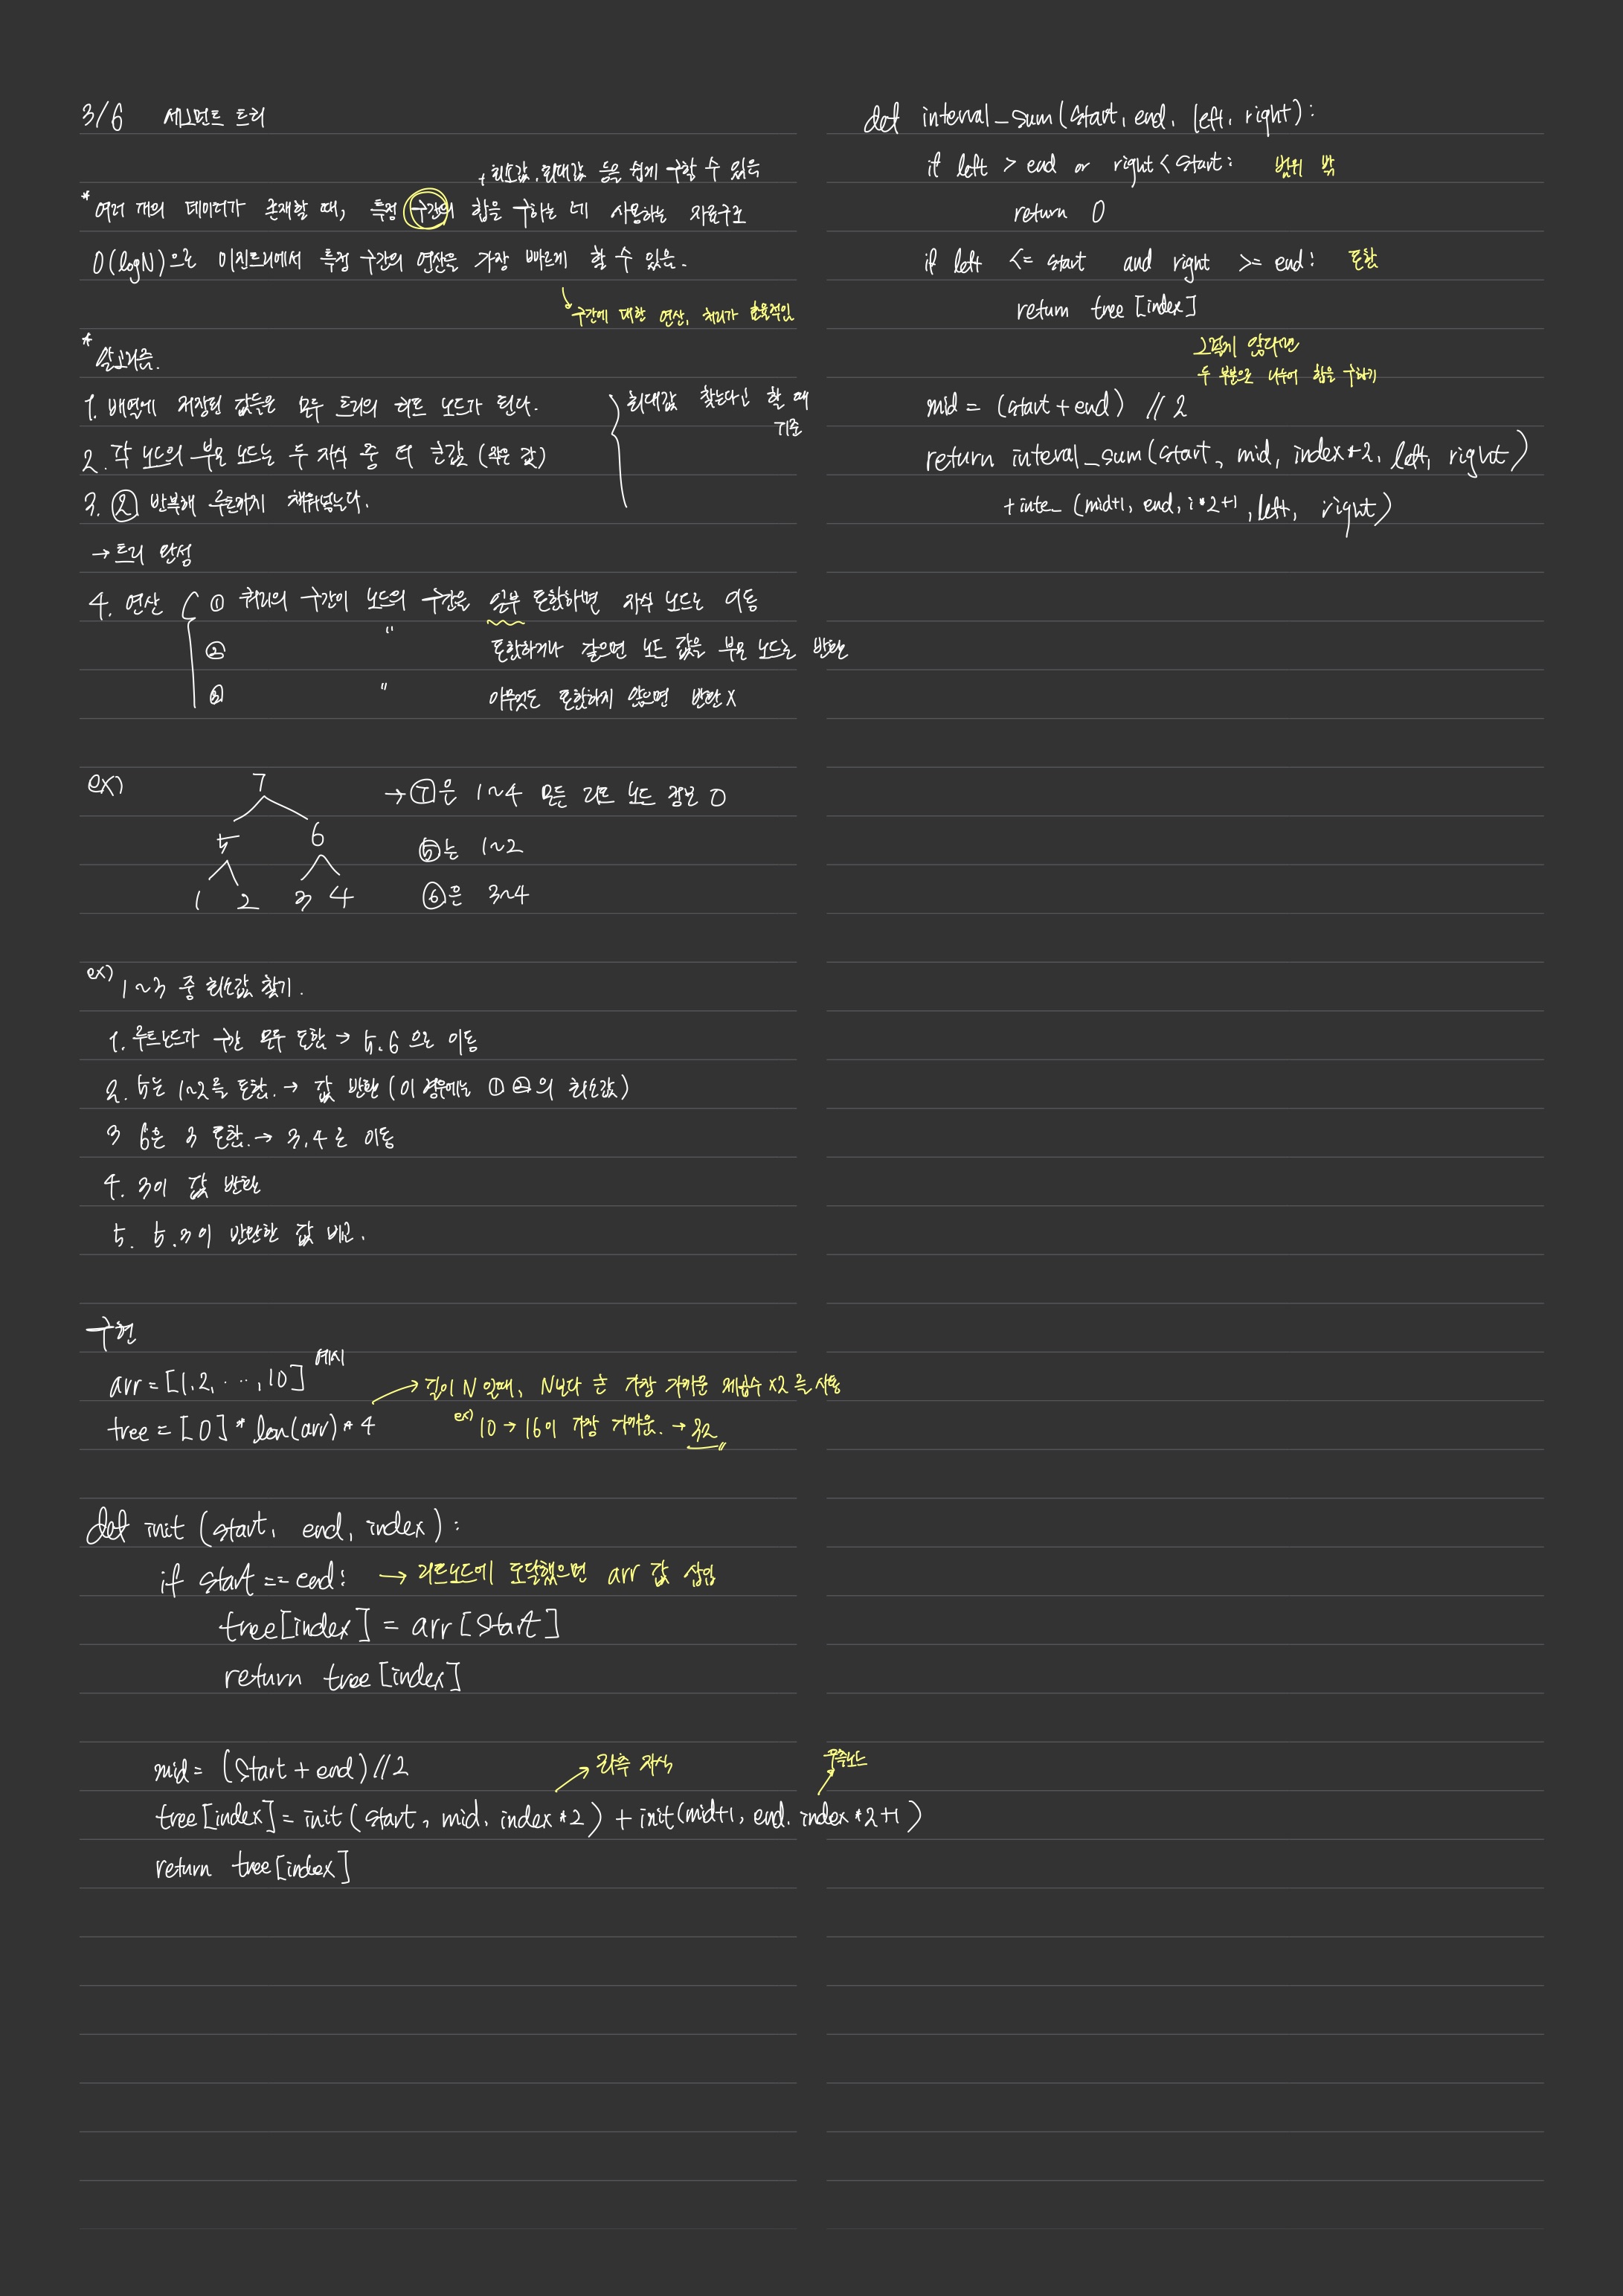 3/6 세그먼트 트리
+ 최소값, 최대값 등을 쉽게 구할 수 있음
* 여러 개의 데이터가 존재할 때, 특정 구간의 합을 구하는 데 사용하는 자료구조
O(logN)으로 이진트리에서 특정 구간의 연산을 가장 빠르게 할 수 있음.
↳ 구간에 대한 연산, 처리가 효율적임
* 알고리즘.
1. 배열에 저장된 값들은 모두 트리의 리프 노드가 된다.
2. 각 노드의 부모 노드는 두 자식 중 더 큰값 (작은 값)
3. ② 반복해 루트까지 채워넣는다.
} 최대값 찾는다고 할 때
기준
→ 트리 완성
4. 연산 { ① 쿼리의 구간이 노드의 구간을 일부 포함하면 자식 노드로 이동
② " 포함하거나 같으면 노드 값을 부모 노드로 반환
③ " 아무것도 포함하지 않으면 반환 X
ex)
7
5 6
1 2 3 4
→ ⑦은 1~4 모든 리프 노드 정보 O
⑤는 1~2
⑥은 3~4
ex) 1~3 중 최소값 찾기.
1. 루트노드가 구간 모두 포함 → 5, 6 으로 이동
2. 5는 1~2를 포함. → 값 반환 (이 경우에는 ① ②의 최소값)
3 6은 3 포함. → 3, 4로 이동
4. 3이 값 반환
5. 5, 3이 반환한 값 비교.
구현
arr = [1, 2, ..., 10] 예시
tree = [0] * len(arr) * 4
→ 길이 N 일때, N보다 큰 가장 가까운 제곱수 x2 를 사용
ex) 10 → 16이 가장 가까움. → 32
def init (start, end, index):
if start == end: → 리프노드에 도달했으면 arr 값 삽입
tree[index] = arr[start]
return tree[index]
mid = (start + end) // 2
→ 좌측 자식
우측노드
tree[index] = init(start, mid, index*2) + init(mid+1, end, index*2+1)
return tree[index]
def interval_sum(start, end, left, right):
if left > end or right < start: 범위 밖
return 0
if left <= start and right >= end: 포함
return tree[index]
그렇지 않다면
두 부분으로 나누어 합을 구하기
mid = (start + end) // 2
return interval_sum(start, mid, index*2, left, right)
+ inte_ (mid+1, end, i*2+1, left, right)